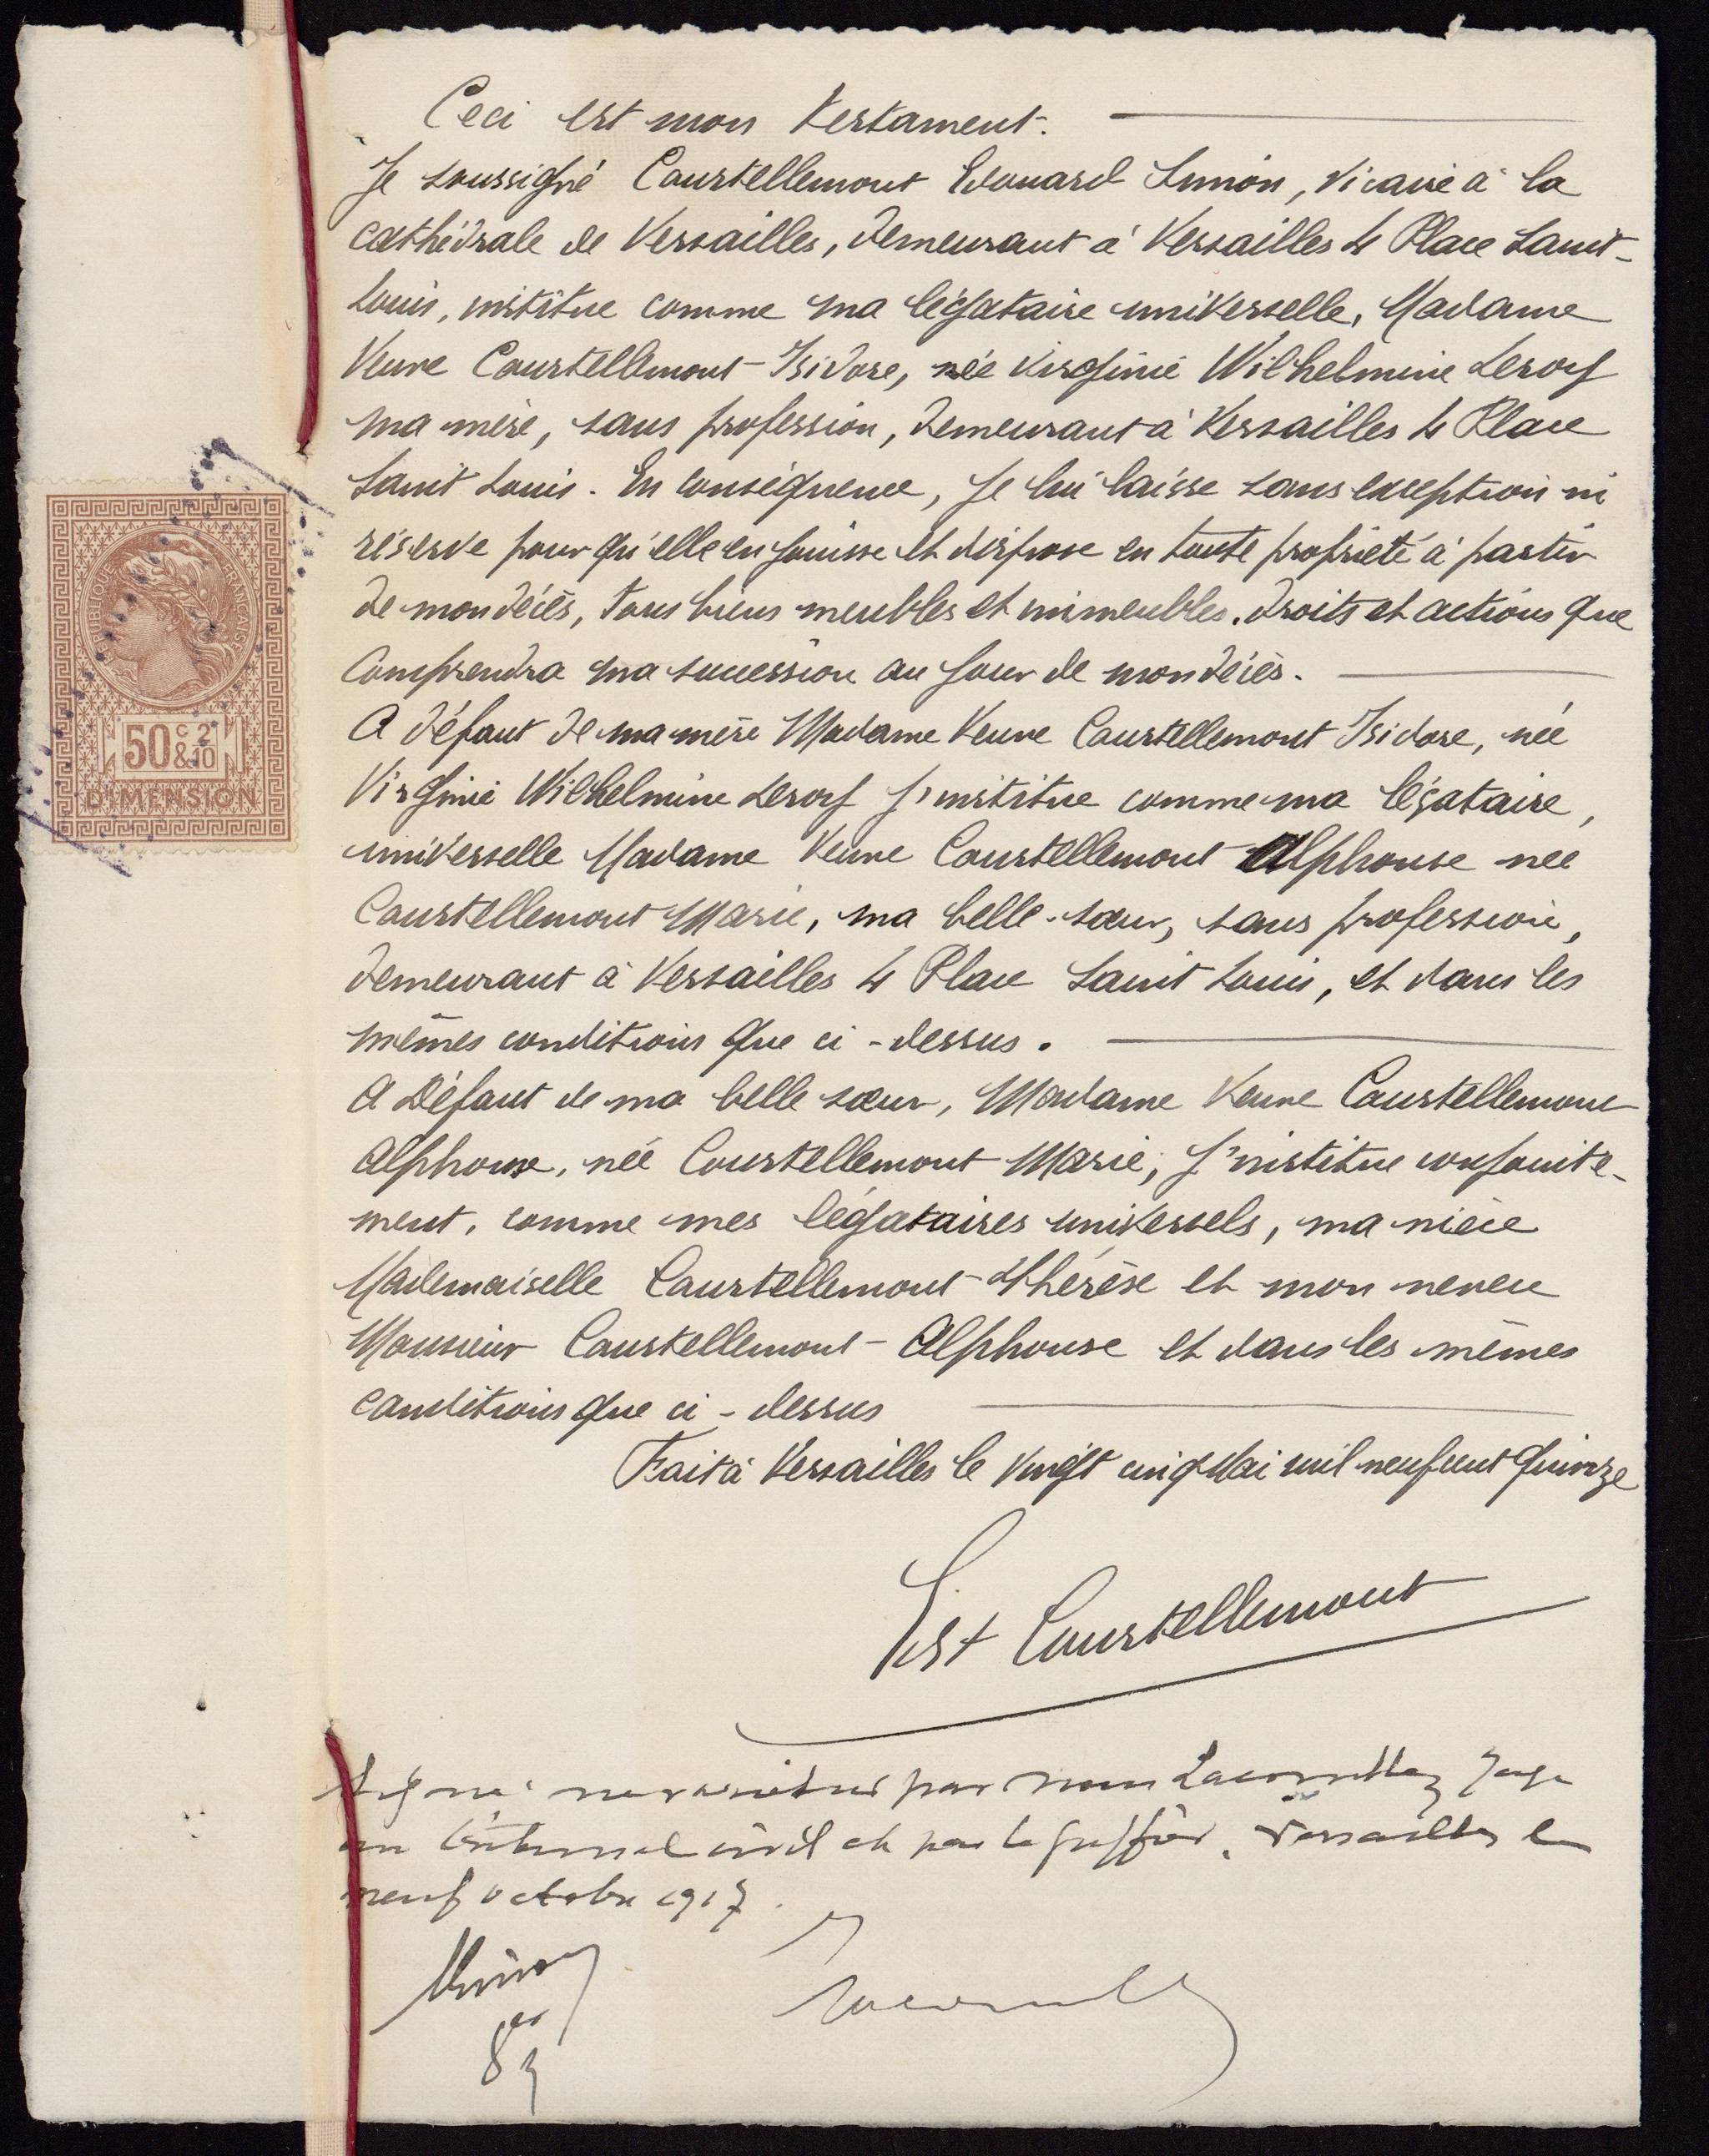 Ceci est mon testament.
Je soussigné Courtellemont Edouard Simon, vicaire à la
cathédrale de Versailles, demeurant à Versailles 4 Place Saint-
Louis, institue comme ma légataire universelle, Madame
Veuve Courtellemont Isidore, née Virginie Wilhelmine Leroy
ma mère, sans profession, demeurant à Versailles 4 Place
Saint Louis. En conséquence, je lui laisse sans exception ni
réserve pour qu'elle en jouisse et dispose en toute propriété à partir
de mon décès, tous biens meubles et immeubles, droits et actions que
comprendra ma succession au jour de mon décès.
A défaut de ma mère Madame Veuve Courtellemont Isidore, née
Virginie Wilhelmine Leroy j'institue comme ma légataire,
universelle Madame Veuve Courtellemont Alphonse née
Courtellemont Marie, ma belle-sœur, sans profession,
demeurant à Versailles 4 Place Saint Louis, et dans les
mêmes conditions que ci-dessus.
A Défaut de ma belle sœur, Madame Veuve Courtellemont
Alphonse, née Courtellemont Marie, j'institue conjointe-
ment, comme mes légataires universels, ma nièce
Mademoiselle Courtellemont Thérèse et mon neveu
Monsieur Courtellemont Alphonse et dans les mêmes
conditions que ci-dessus
Fait à Versailles le vingt cinq Mai mil neuf cent quinze
Courtellemont
REPUBLIQUE FRANÇAISE
50 C & 2/10
DIMENSION
Signé ne varietur par nous Juge
au tribunal civil et par le greffier. Versailles le
neuf octobre 1917.